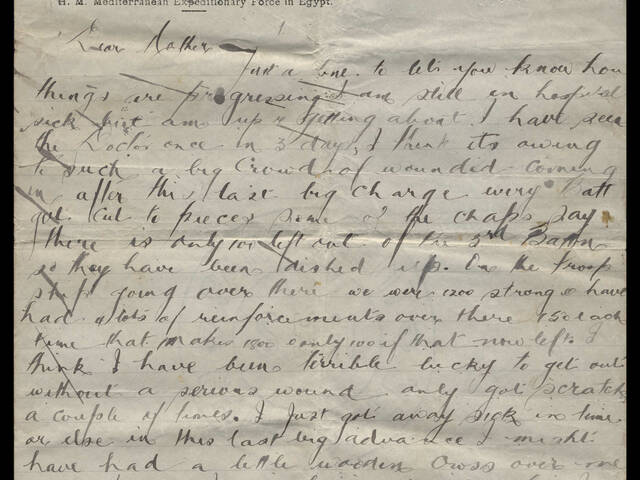 H. M. Mediterranean Expeditionary Force in Egypt.
Dear Mother
Just a line to let you know how
things are progressing I am still in hospital
sick but am up & getting about I have seen
the Doctor once in 3 days, I think its owing
to such a big crowd of wounded coming
in after this last big charge every Batt
got cut to pieces some of the chaps say
there is only 100 left out of the 3rd Battn
so they have been dished up. On the troop
ship going over there we were 1200 strong & have
had lots of reinforcements over there 150 each
time that makes 1800 & only 100 if that now left. I
think I have been terrible lucky to get out
without a serious wound only got scratch
a couple of times. I just got away sick in time
or else in this last big advance I might
have had a little wooden cross over me